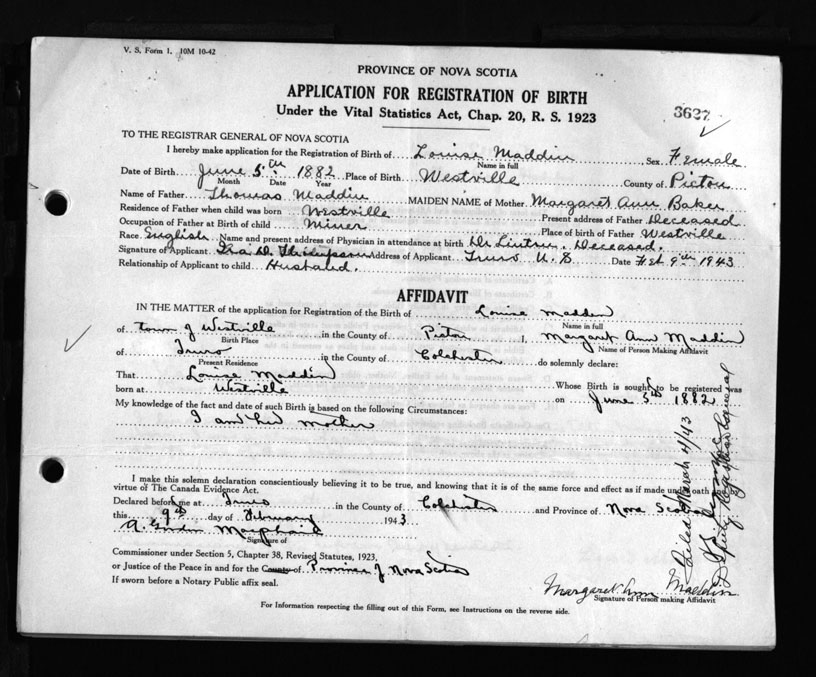 V. S. Form 1. 10M 10-42
PROVINCE OF NOVA SCOTIA
APPLICATION FOR REGISTRATION OF BIRTH
Under the Vital Statistics Act, Chap. 20, R. S. 1923
3627
TO THE REGISTRAR GENERAL OF NOVA SCOTIA
I hereby make application for the Registration of Birth of Louise Maddin Sex Female
Name in full
Date of Birth June 5th 1882 Place of Birth Westville County of Pictou
Month Date Year
Name of Father Thomas Maddin MAIDEN NAME of Mother Margaret Ann Baker
Residence of Father when child was born Westville Present address of Father Deceased
Occupation of Father at Birth of child Miner Place of birth of Father Westville
Race English Name and present address of Physician in attendance at birth Dr Deceased.
Signature of Applicant Ira D. Thompson Address of Applicant Truro N. S Date Feb 9th 1943
Relationship of Applicant to child Husband.
AFFIDAVIT
IN THE MATTER of the application for Registration of the Birth of Louise Madden
Name in full
of town of Westville in the County of Pictou I, Margaret Ann Maddin
Birth Place Name of Person Making Affidavit
of Truro in the County of Colchester do solemnly declare:
Present Residence
That Louise Maddin Whose Birth is sought to be registered was
born at Westville on June 5th 1882
My knowledge of the fact and date of such Birth is based on the following Circumstances:
I am her mother
I make this solemn declaration conscientiously believing it to be true, and knowing that it is of the same force and effect as if made under oath and by
virtue of The Canada Evidence Act.
Declared before me at Truro in the County of Colchester and Province of Nova Scotia
this 9th day of February 1943
A. Gordon
Signature of
Commissioner under Section 5, Chapter 38, Revised Statutes, 1923,
or Justice of the Peace in and for the County of Province of Nova Scotia
If sworn before a Notary Public affix seal.
Margaret Ann Maddin
Signature of Person making Affidavit
For Information respecting the filling out of this Form, see Instructions on the reverse side.
Filed March 4/43
Deputy Registrar General